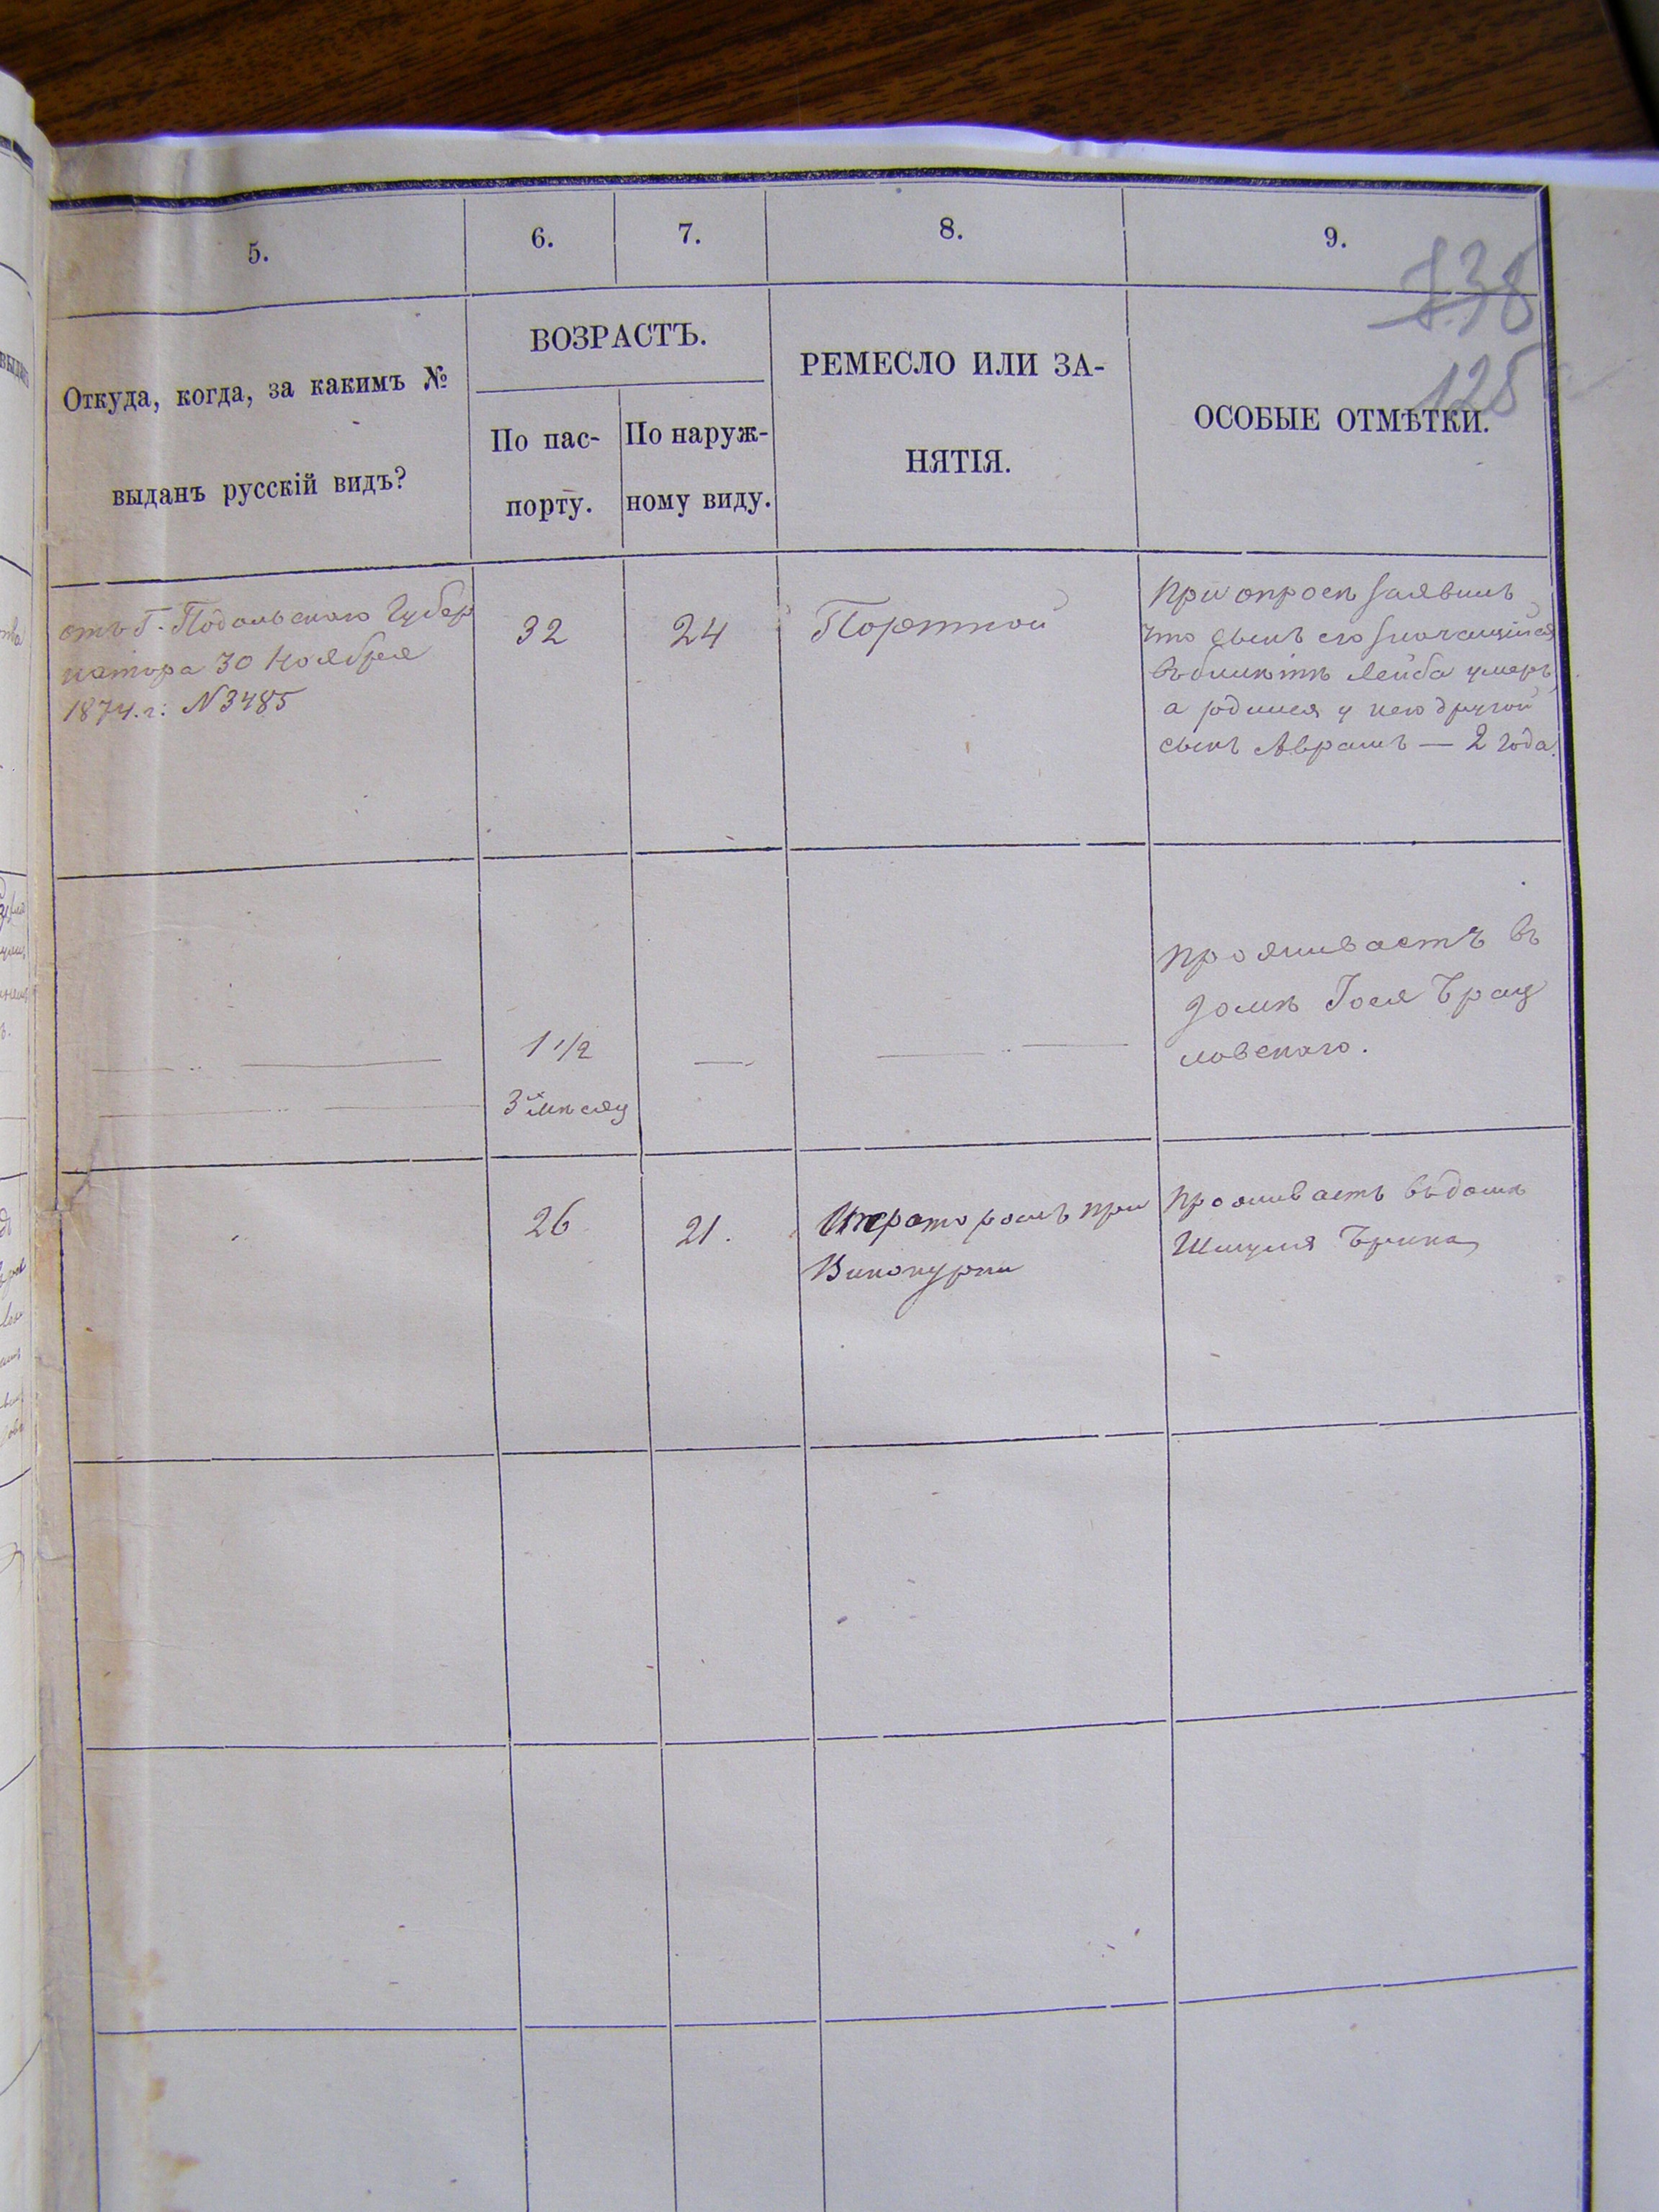 5.
6.
7.
8.
9.
738
125
Откуда, когда, за какимъ №
выданъ русскій видъ?
ВОЗРАСТЪ.
По пас-
порту.
По наруж-
ному виду.
РЕМЕСЛО ИЛИ ЗА-
НЯТІЯ.
ОСОБЫЕ ОТМѢТКИ.
отъ Г. Подольскаго Губер
натора 30 Ноября
1874. г. N 3485
32
24
Портной
При опросѣ заявилъ
что сынъ его значащійся
въ билѣтѣ Лейба умеръ
а родился у него другой
сынъ Аврамъ — 2 года.
1 1/2
3х мѣсяц
проживаетъ въ
домѣ Іося Брац
лавскаго.
26
21.
при
Винокурни
Проживаетъ въ домѣ
Шмуля